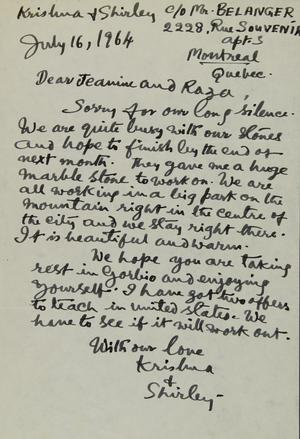 Krishna & Shirley c/o Mr. BELANGER
2228, Rue SOUVENIR
apt. 3
July 16, 1964
Montreal
Quebec.
Dear Jeanine and Raza,
Sorry for our long silence.
We are quite busy with our stones
and hope to finish by the end of
next month. They gave me a huge
marble stone to work on. We are
all working in a big park on the
mountain right in the centre of
the city and we stay right there.
It is beautiful and warm.
We hope you are taking
rest in Gorbio and enjoying
yourself. I have got two offers
to teach in united states. We
have to see if it will work out.
With our love
Krishna
&
Shirley